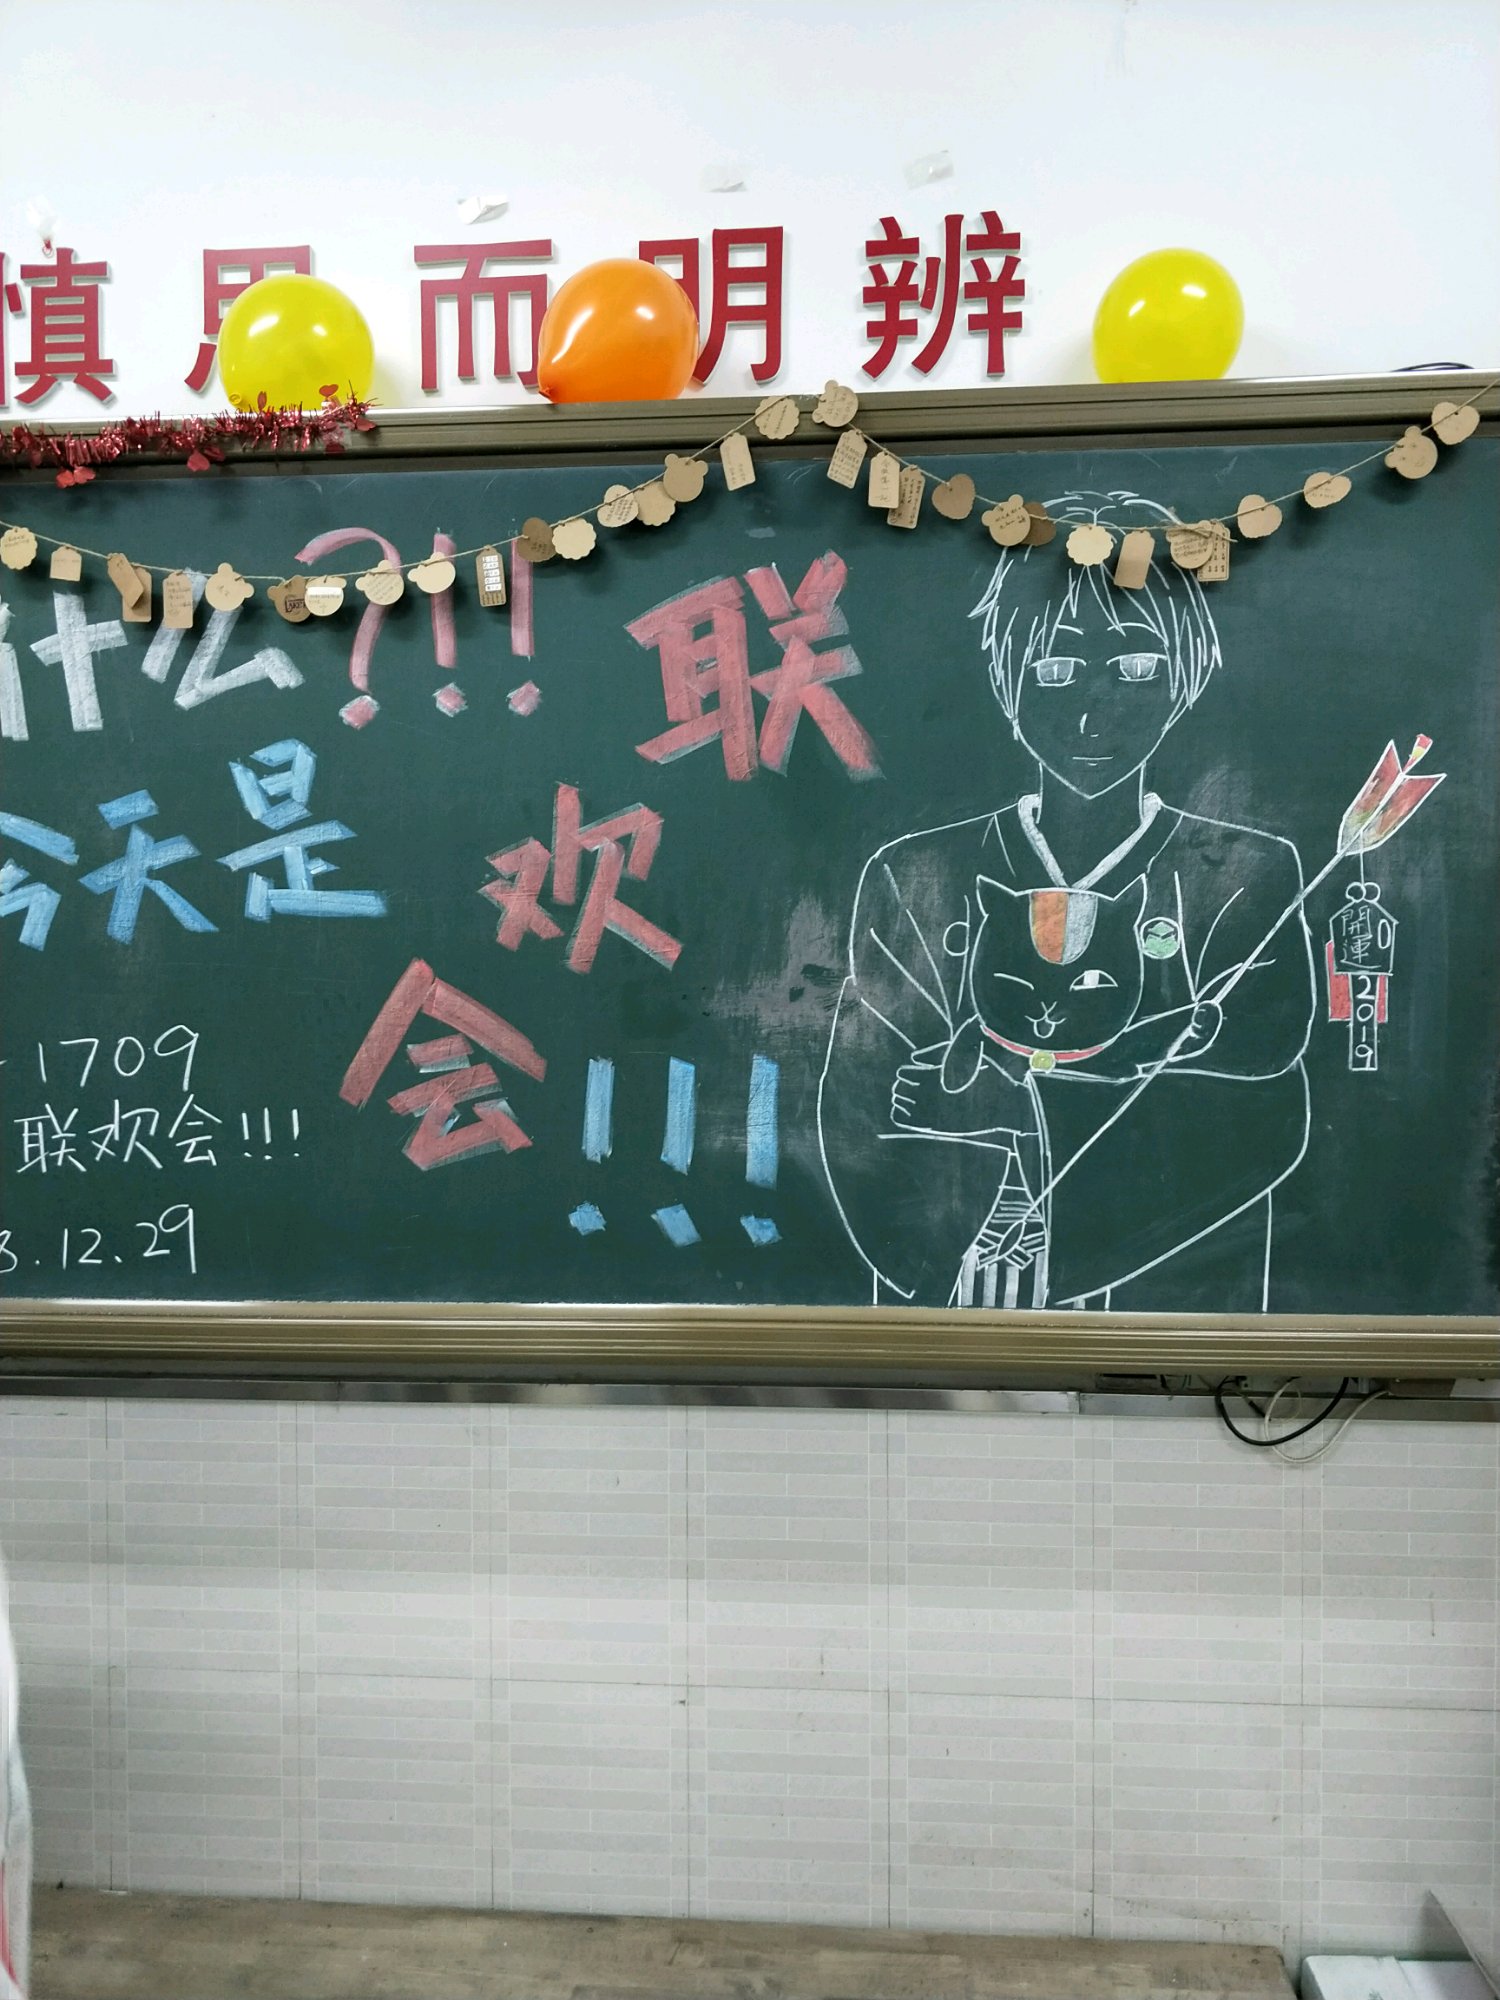 慎思而明辨
什么?!!
今天是
联
欢
会!!!
1709
联欢会!!!
8.12.29
開
運
2019